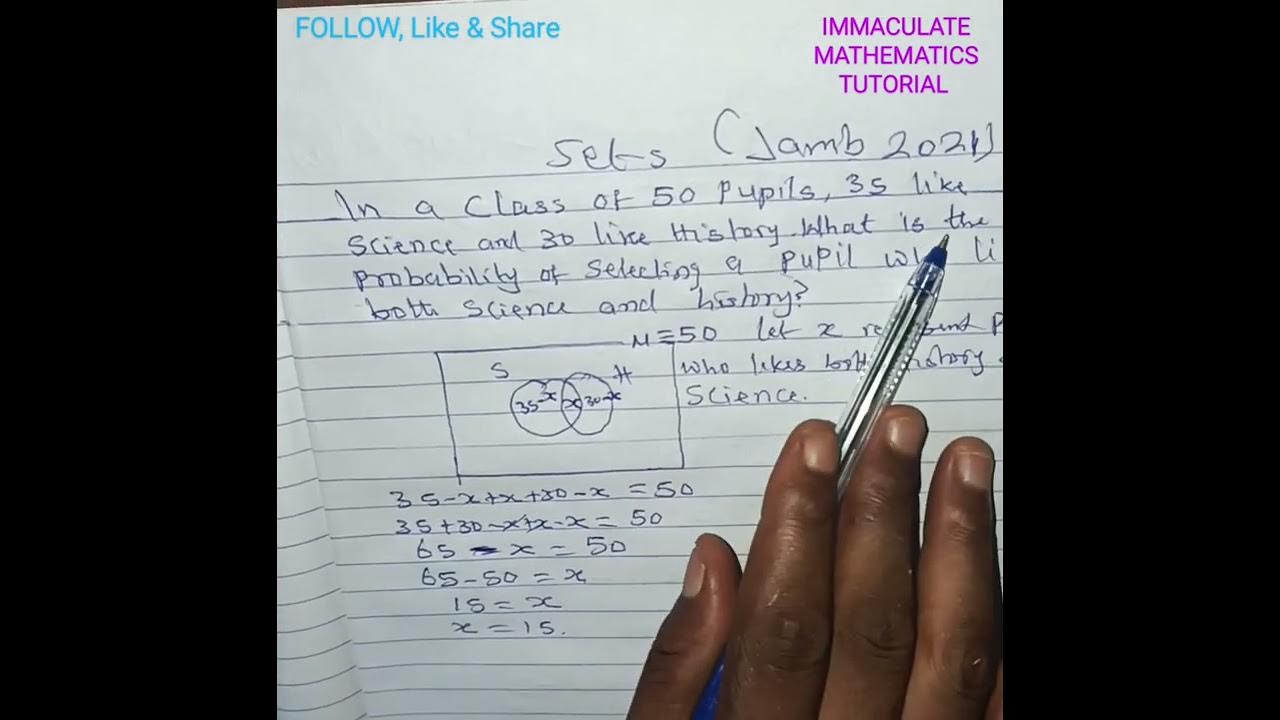 FOLLOW, Like & Share
IMMACULATE
MATHEMATICS
TUTORIAL
Sets (Jamb 2021)
In a Class of 50 Pupils, 35 like
Science and 30 like History. What is the
Probability of Selecting a pupil who li
both Science and history?
μ=50 let x represent P
who likes both history
Science.
S H
35-x x 30-x
35-x+x+30-x = 50
35+30-x+x-x = 50
65 - x = 50
65-50 = x
15 = x
x = 15.